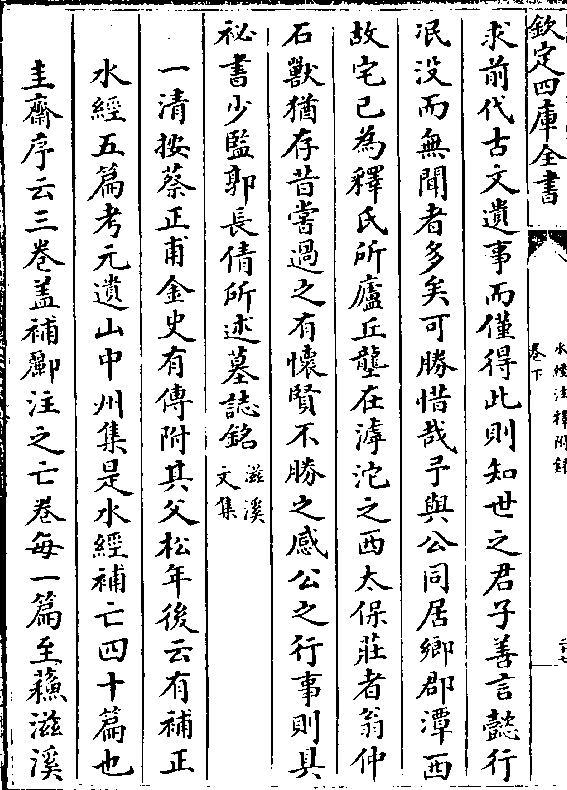 欽定四庫全書
水經注釋附錄
卷下
求前代古文遺事而僅得此則知世之君子善言懿行
泯没而無聞者多矣可勝惜哉予與公同居鄉郡潭西
故宅已為釋氏所廬丘壟在滹沱之西太保莊者翁仲
石獸猶存昔嘗過之有懷賢不勝之感公之行事則具
祕書少監郭長倩所述墓誌銘滋溪文集
一清按蔡正甫金史有傳附其父松年後云有補正
水經五篇考元遺山中州集是水經補亡四十篇也
圭齋序云三卷盖補酈注之亡卷每一篇至蘓滋溪